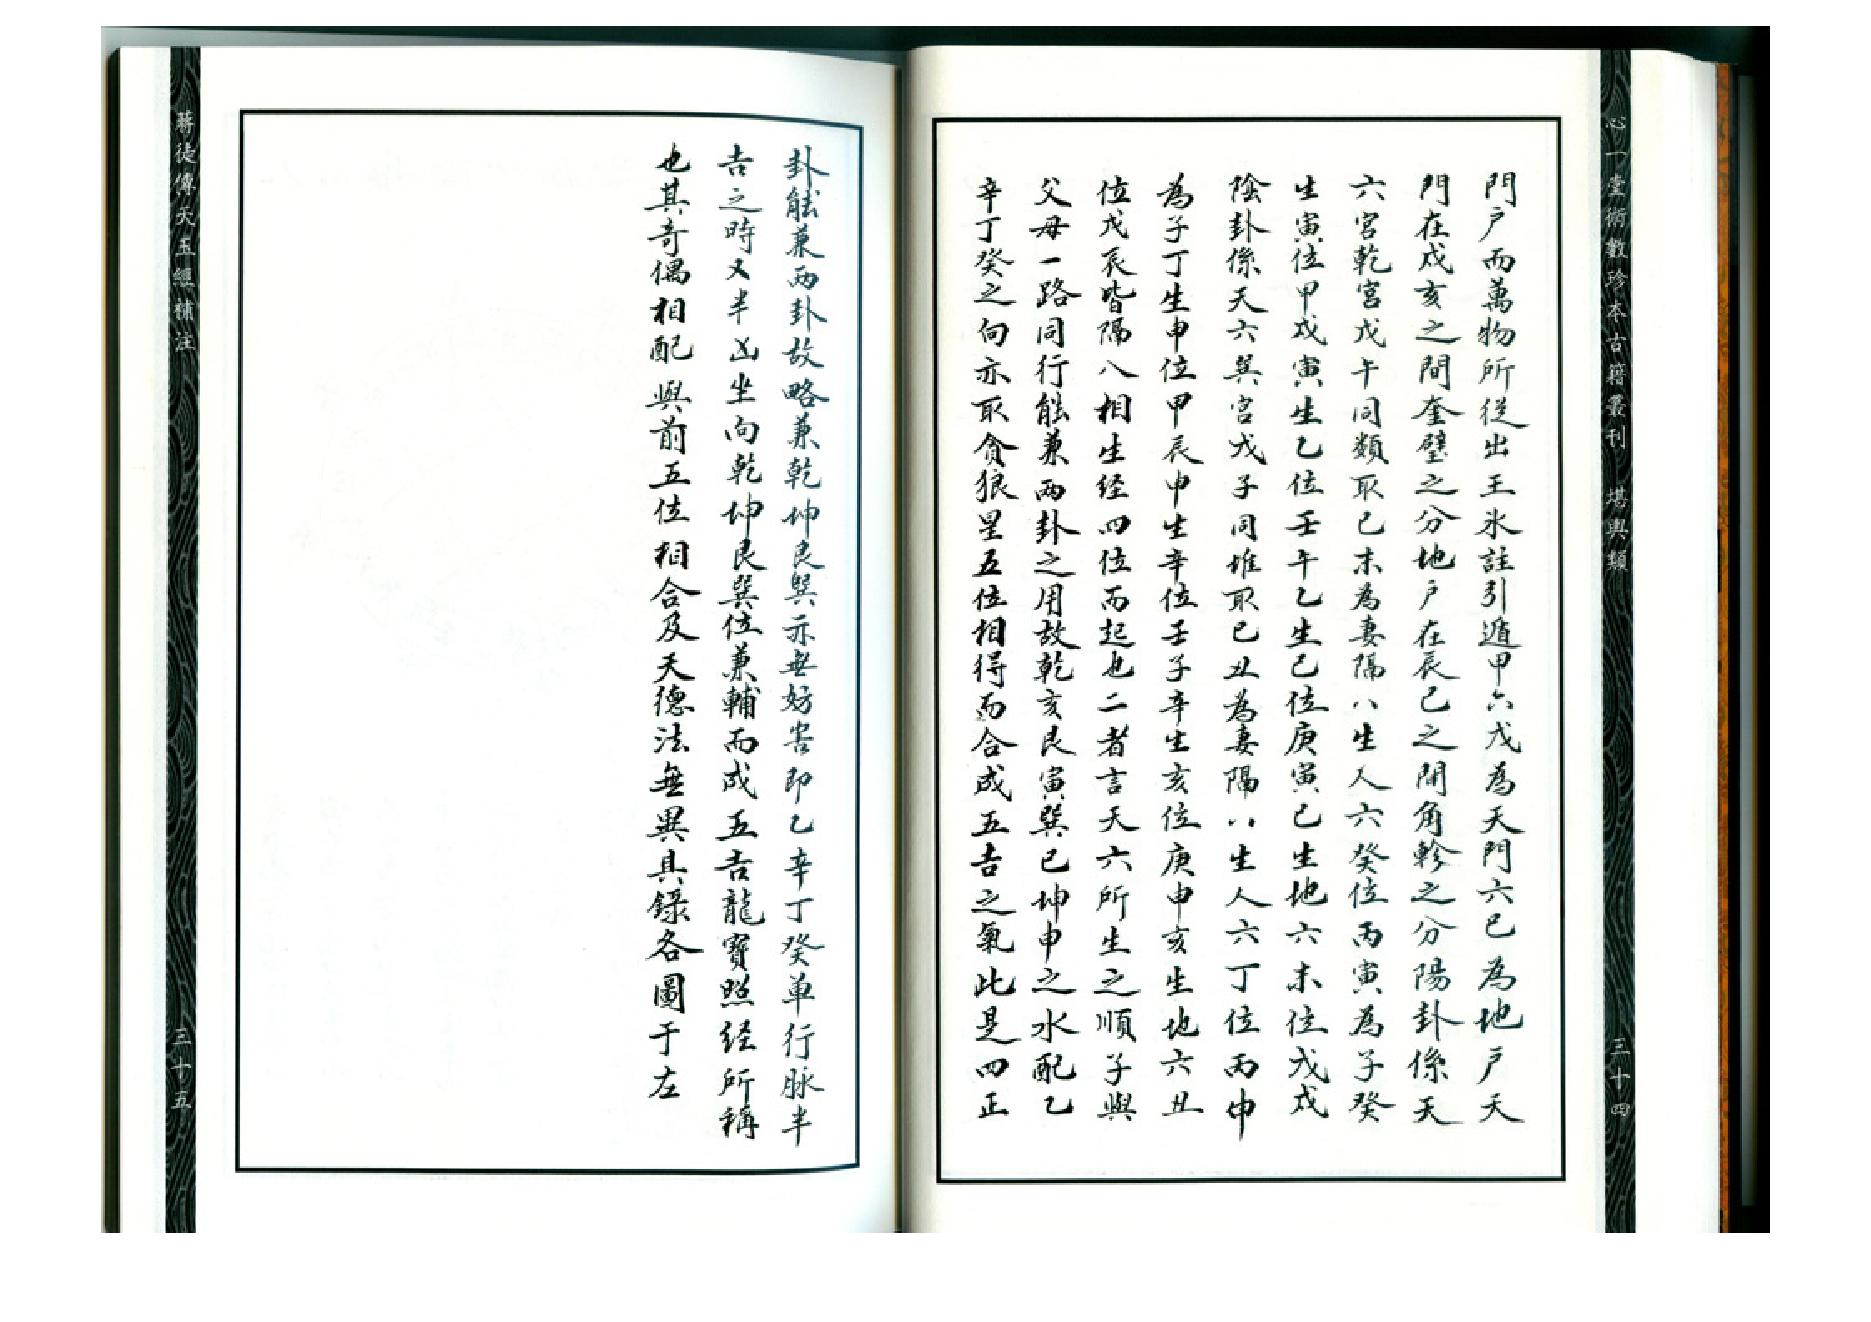 心一堂術數珍本古籍叢刊 堪輿類
三十四
門戶而萬物所從出王氷註引遁甲六戊為天門六己為地戶天
門在戌亥之間奎壁之分地戶在辰巳之間角軫之分陽卦係天
六宮乾宮戊午同類取己未為妻隔八生人六癸位丙寅為子癸
生寅位甲戌寅生乙位壬午乙生己位庚寅己生地六未位戊戌
陰卦係天六巽宮戊子同堆取己丑為妻隔八生人六丁位丙申
為子丁生申位甲辰申生辛位壬子辛生亥位庚申亥生地六丑
位戊辰皆隔八相生経四位而起也二者言天六所生之順子與
父母一路同行能兼兩卦之用故乾亥艮寅巽巳坤申之水配乙
辛丁癸之向亦取貪狼星五位相得而合成五吉之氣此是四正
卦能兼兩卦故略兼乾坤艮巽亦無妨害即乙辛丁癸单行脉半
吉之時又半凶坐向乾坤艮巽位兼輔而成五吉龍寶照経所稱
也其奇偶相配與前五位相合及天德法無異具錄各圖于左
蔣徒傳天玉經補注
三十五